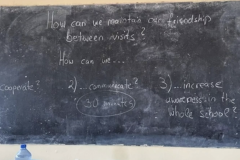 How can we maintain our friendship
between visits?
How can we...
cooperate?
2)...communicate?
(30 minutes)
3)...increase
awareness in the
whole school?